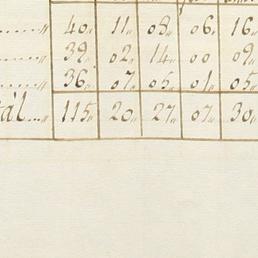 40„ 11„ 08„ 06„ 16„
39„ 02„ 14„ 00„ 09„
36„ 07„ 05„ 01„ 05„
ál...„ 115„ 20„ 27„ 07„ 30„